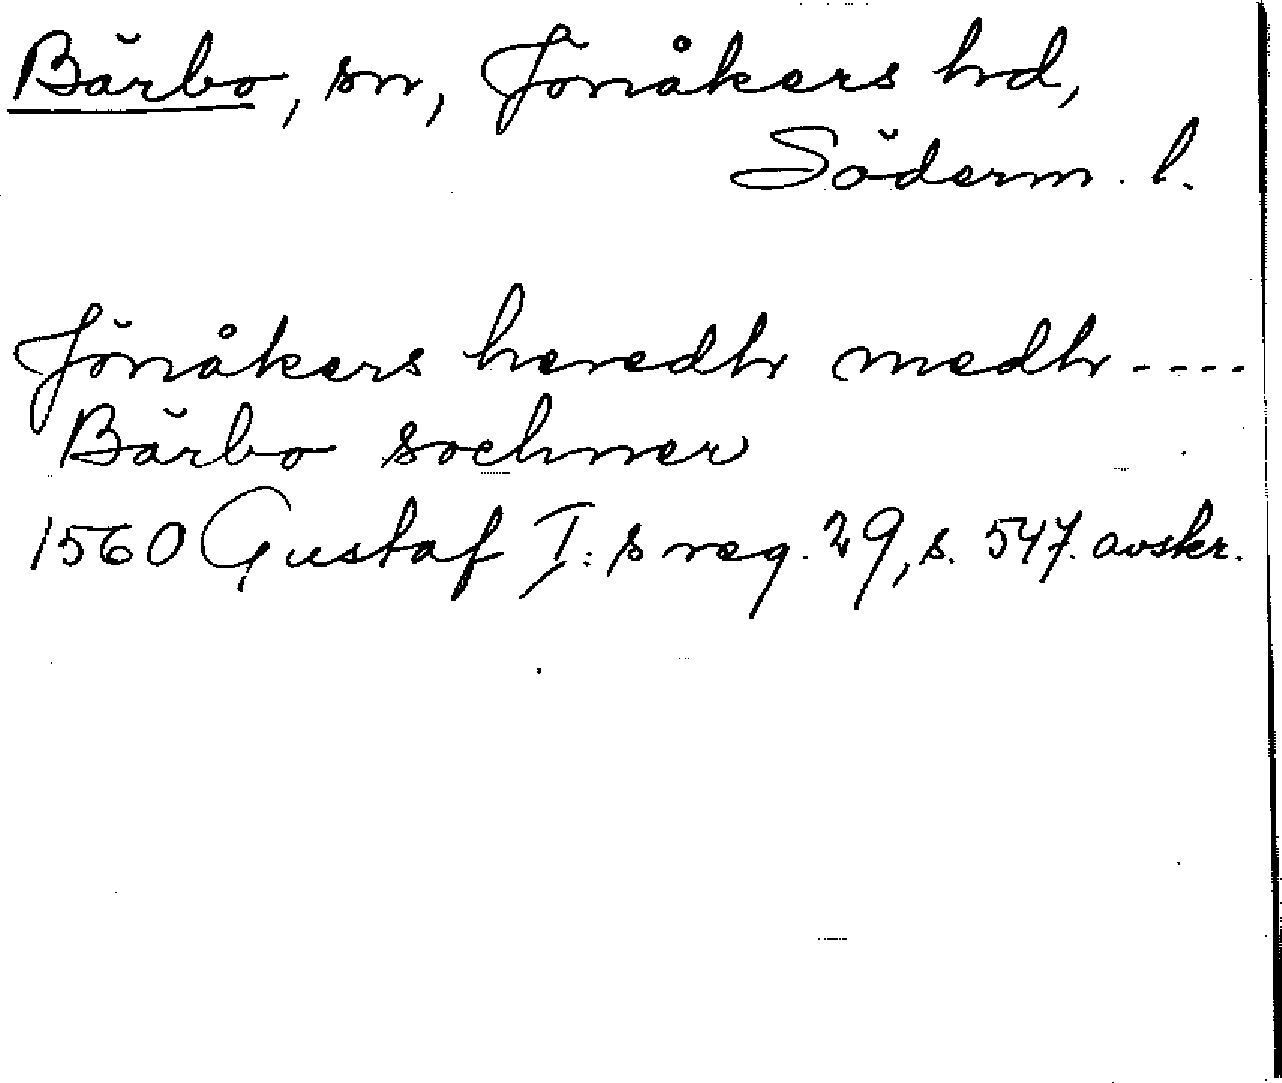 Bärbo, sn, Jönåkers hd,
Söderm. l.
Jönåkers heredh medh ----
Bärbo sochner
1560 Gustaf I:s reg. 29, s. 547. avskr.